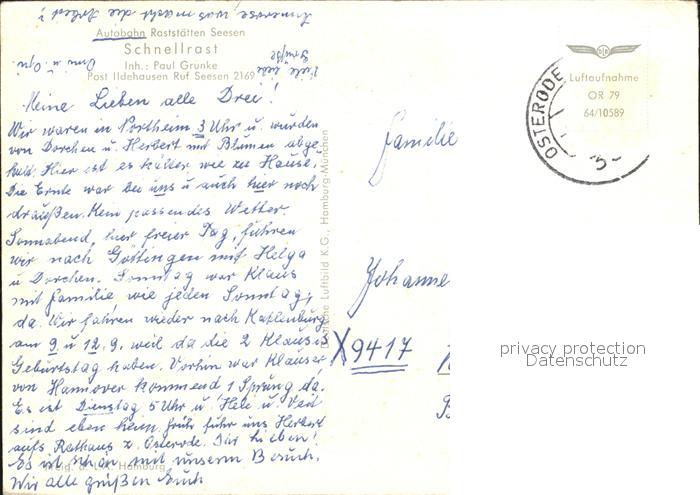 Annerose, was macht die Arbeit?
Autobahn Raststätten Seesen
Schnellrast
Inh.: Paul Grunke
Post Ildehausen Ruf Seesen 2169
Viele liebe
Grüße
Oma u. Opa
Meine Lieben alle Drei!
Wir waren in Northeim 3 Uhr u. wurden
von Dorchen u. Herbert mit Blumen abge
holt. Hier ist es kälter wie zu Hause.
Die Ernte war bei uns u auch hier noch
draußen. Kein passendes Wetter.
Sonnabend, hier freier Tag, fuhren
wir nach Göttingen mit Helga
u Dorchen. Sonntag war Klaus
mit Familie wie jeden Sonntag,
da. Wir fahren wieder nach Katlenburg
am 9 u 12.9. weil da die 2 Klauses
Geburtstag haben. Vorhin war Klauser
von Hannover kommend 1 Sprung da.
Es ist Dienstag 5 Uhr u. Hele u. Veit
sind eben heim früh fuhr uns Herbert
aufs Rathaus z. Osterode. Ihr Lieben!
Es ist schön mit unserm Besuch.
Wir alle grüßen Euch
Weld. d. L.A. Hamburg
Deutsche Luftbild K.G., Hamburg-München
Luftaufnahme
OR 79
64/10589
OSTERODE
Familie
Johanne
X 9417
privacy protection
Datenschutz